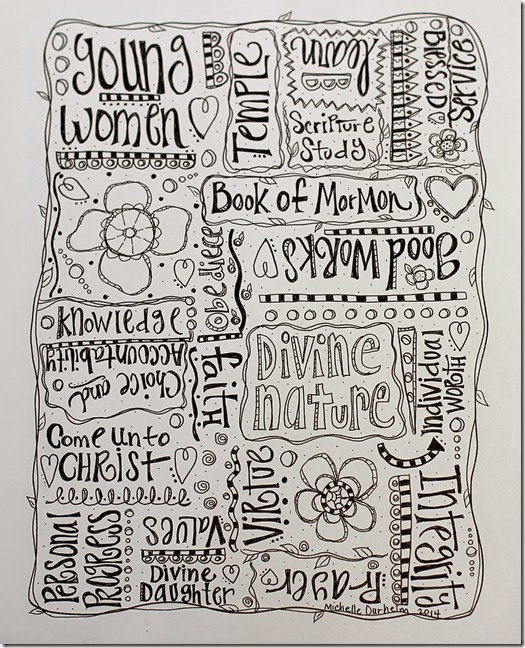 young
women
Temple
learn
Scripture
Study
Blessed
Service
Book of Mormon
good works
obediece
Knowledge
Choice and
Accountability
faith
Divine
nature
Individual
worth
Come Unto
CHRIST
Virtue
Integrity
Personal
Progress
Values
Divine
Daughter
Prayer
Michelle 2014